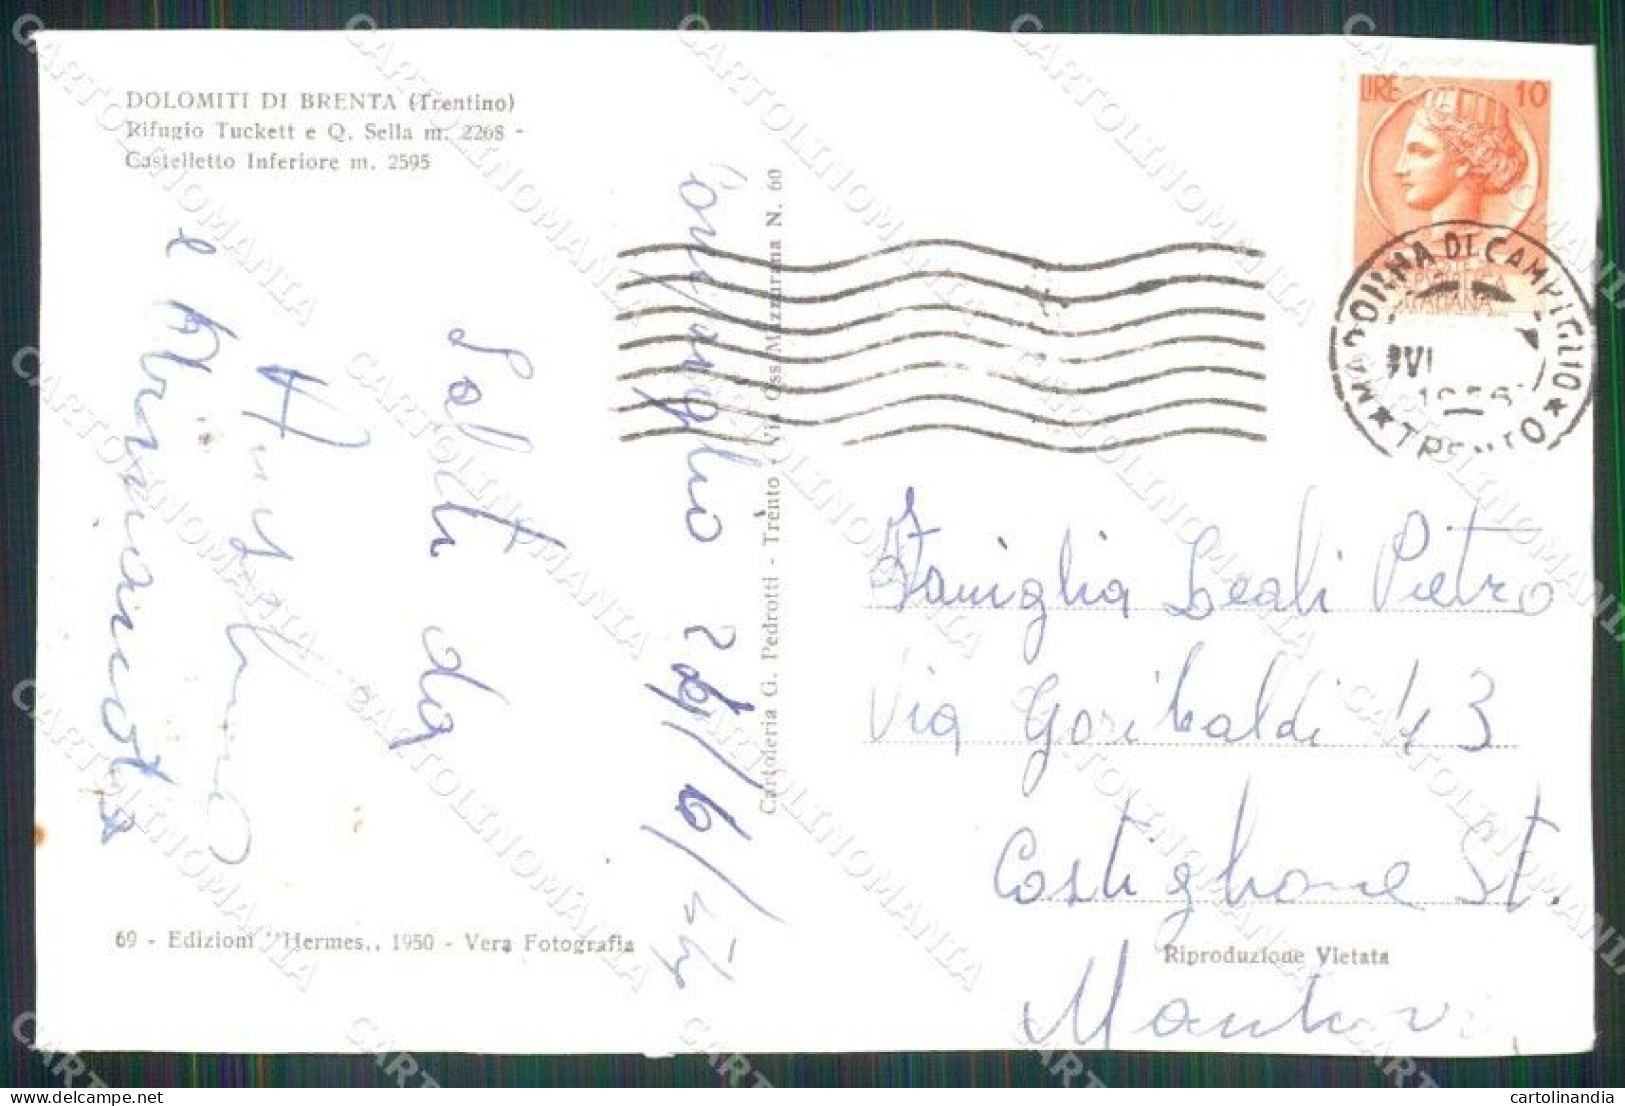 DOLOMITI DI BRENTA (Trentino)
Rifugio Tuckett e Q. Sella m. 2268 -
Castelletto Inferiore m. 2595
Saluti da
e
69 - Edizioni "Hermes,, 1950 - Vera Fotografia
Cartoleria G. Pedrotti - Trento - Via Oss Mazzurana N. 60
LIRE 10
REPUBBLICA
ITALIANA
MADONNA DI CAMPIGLIO
VI
★ TRENTO ★
Famiglia Leali Pietro
Via Garibaldi 43
Castiglione St.
Mantova
Riproduzione Vietata
CARTOLINOMANIA
cartolinandia